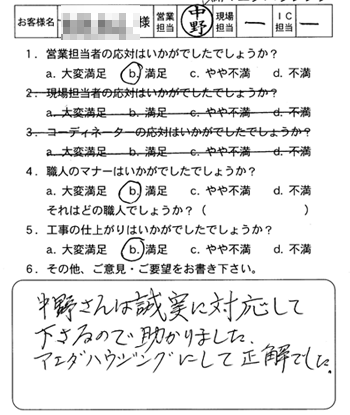 お客様名 様 営業担当 中野 現場担当 ー IC担当 ー
1．営業担当者の応対はいかがでしたでしょうか？
a. 大変満足 b. 満足 c. やや不満 d. 不満
2．現場担当者の応対はいかがでしたでしょうか？
a. 大変満足 b. 満足 c. やや不満 d. 不満
3．コーディネーターの応対はいかがでしたでしょうか？
a. 大変満足 b. 満足 c. やや不満 d. 不満
4．職人のマナーはいかがでしたでしょうか？
a. 大変満足 b. 満足 c. やや不満 d. 不満
それはどの職人でしょうか？（ ）
5．工事の仕上がりはいかがでしたでしょうか？
a. 大変満足 b. 満足 c. やや不満 d. 不満
6．その他、ご意見・ご要望をお書き下さい。
中野さんは誠実に対応して
下さるので助かりました.
アエダハウジングにして正解でした.